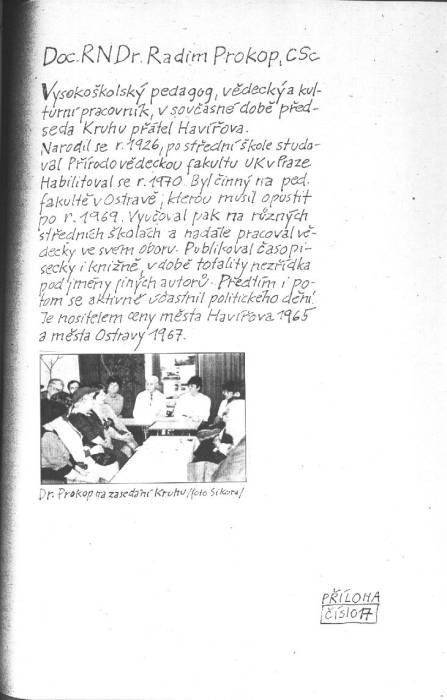 Doc. RNDr. Radim Prokop, CSc.
Vysokoškolský pedagog, vědecký a kul-
turní pracovník, v současné době před-
seda Kruhu přátel Havířova.
Narodil se r. 1926, po střední škole studo-
val Přírodovědeckou fakultu UK v Praze.
Habilitoval se r. 1970. Byl činný na ped.
fakultě v Ostravě, kterou musil opustit
po r. 1969. Vyučoval pak na různých
středních školách a nadále pracoval vě-
decky ve svém oboru. Publikoval časopi-
secky i knižně, v době totality nezřídka
pod jmény jiných autorů. Předtím i po-
tom se aktivně účastnil politického dění.
Je nositelem ceny města Havířova 1965
a města Ostravy 1967.
Dr. Prokop na zasedání Kruhu /foto Sikora/
PŘÍLOHA
ČÍSLO 17